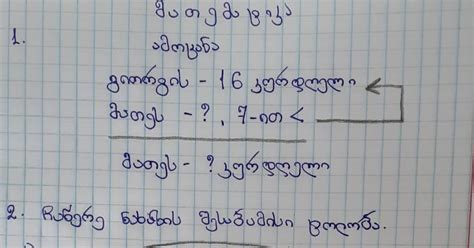 მათემატიკა
1.
ამოცანა
გიორგის - 16 კურდღელი
მათეს - ?, 7-ით <
მათეს - ? კურდღელი
2. ჩაწერე ნახაზის შესაბამისი ტოლობა.